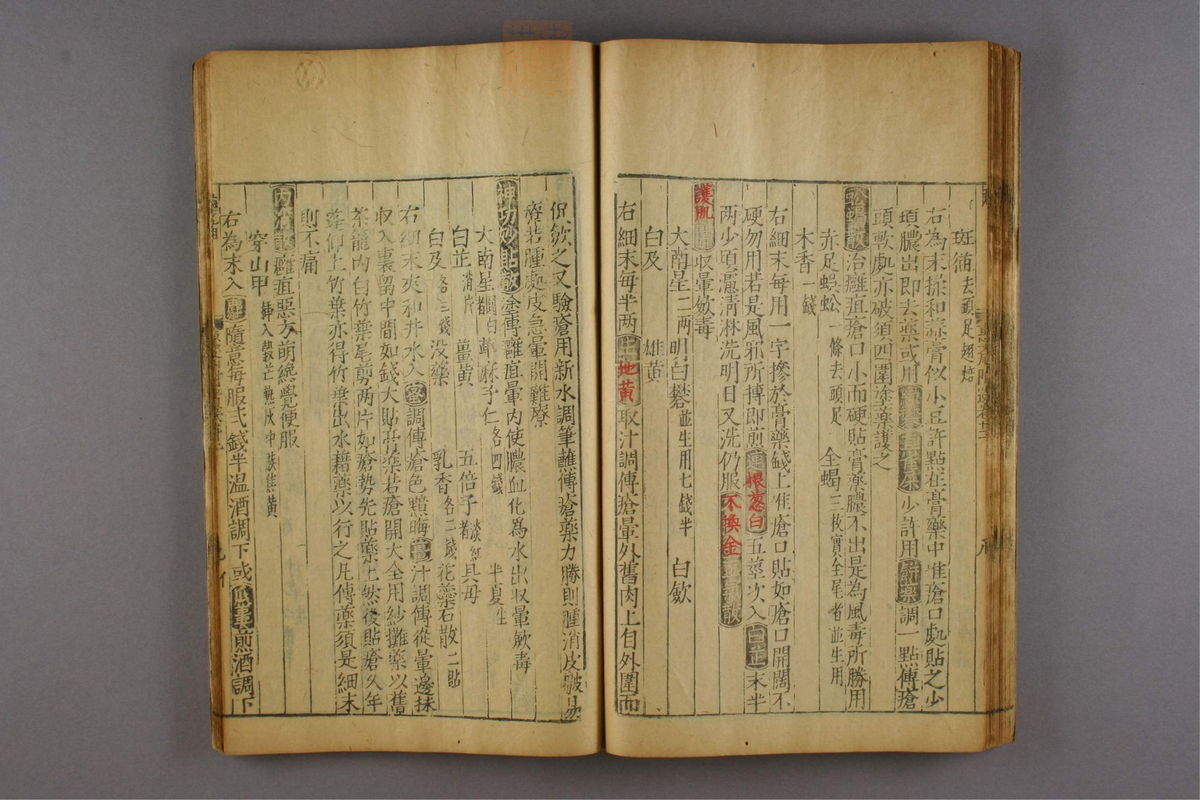 斑猫去頭足翅焙
右為末揉和蒜膏似小豆許點在膏藥中惟瘡口處貼之少
頃膿出即去藥或用 少許用 調一點傅瘡
頭軟處亦破須四圍塗藥護之
蜈蚣散治癰疽瘡口小而硬貼膏藥膿不出是為風毒所勝用
赤足蜈蚣一條去頭足 全蝎三枚實全尾者並生用
木香一錢
右細末每用一字摻於膏藥錢上惟瘡口貼如瘡口開闊不
硬勿用若是風邪所搏即煎連根葱白五莖次入白芷末半
兩少頃濾清淋洗明日又洗仍服不換金正氣散
護肌 收暈斂毒
大南星二兩 明白礬並生用七錢半 白斂
白及 雄黃
右細末每半兩生地黃取汁調傅瘡暈外舊肉上自外圍而
促斂之又驗瘡用新水調筆蘸傅瘡藥力勝則腫消皮皺易
療若腫處皮急暈開難療
神功妙貼散塗傅癰疽暈內使膿血化為水出收暈斂毒
大南星圓白 蓖麻子仁各四錢 五倍子淡紅者 半夏生
白芷消片 薑黃 貝母
白及各三錢 没藥 乳香各二錢 花蘂石散二貼
右細末夾和井水入蜜調傅瘡色黯晦薑汁調傅從暈邊抹
收入裏留中間如錢大貼膏藥若瘡開大全用紗攤藥以舊
茶籠內白竹葉尾剪兩片如瘡勢先貼藥上然後貼瘡久年
蓬仰上竹葉亦得竹葉出水藉藥以行之凡傅藥須是細末
則不痛
內消散癰疽惡方萌纔覺便服
穿山甲插入穀芒熱灰中 焦黃
右為末入 隨意每服弍錢半温酒調下或瓜蔞煎酒調下